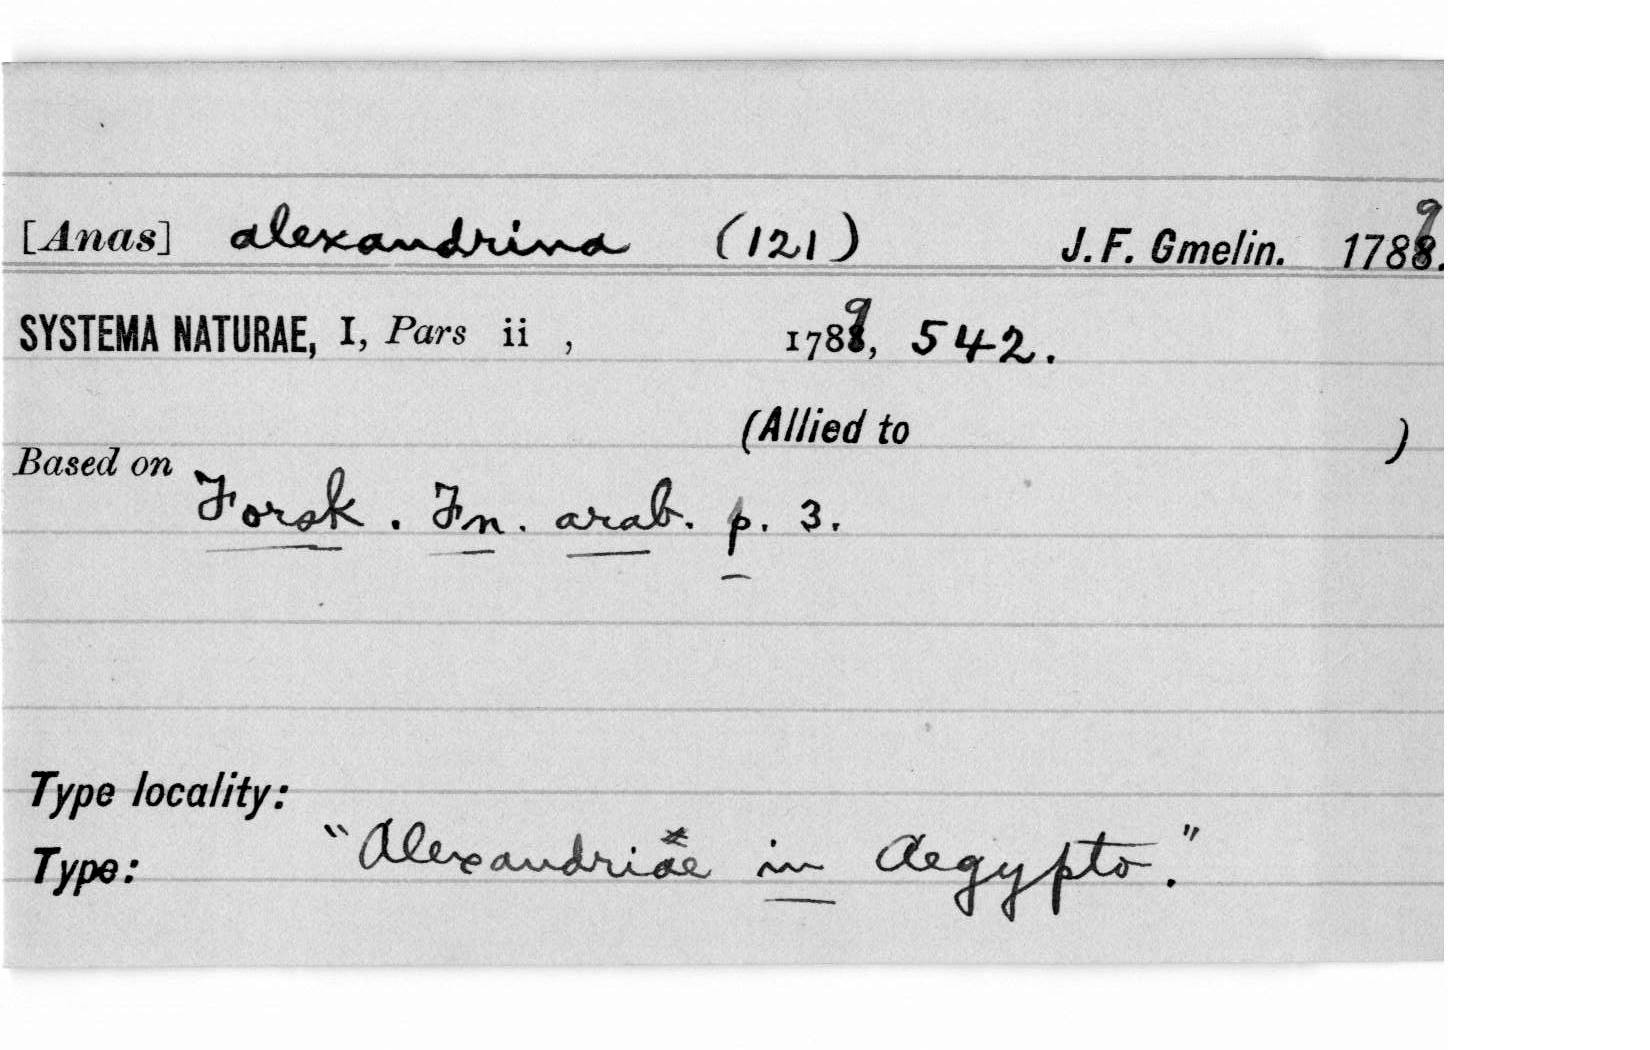 [Anas] alexandrina (121) J. F. Gmelin. 1789.
SYSTEMA NATURAE, I, Pars ii , 1789, 542.
(Allied to )
Based on
Forsk. Fn. arab. p. 3.
Type locality:
"Alexandriae in Aegypto."
Type: